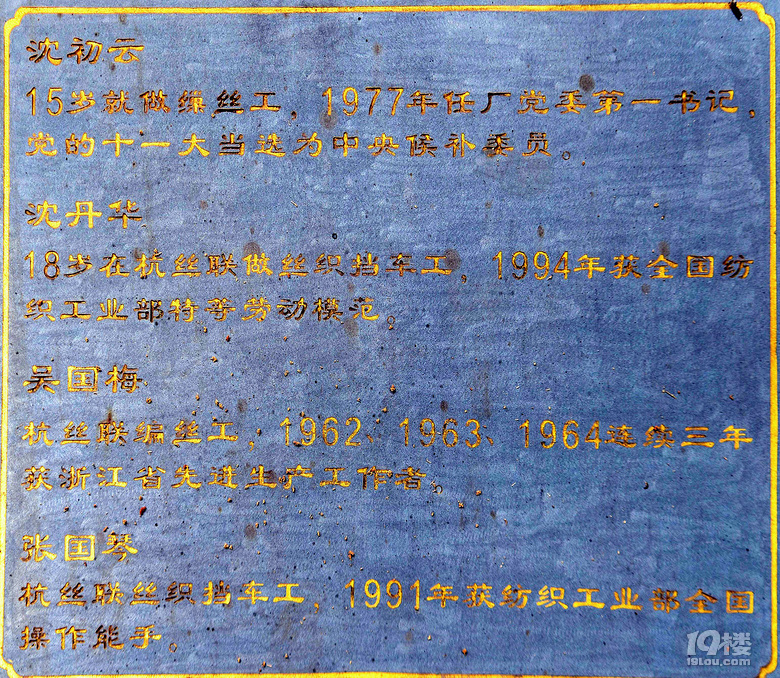 沈初云
15岁就做缫丝工，1977年任厂党委第一书记，
党的十一大当选为中央候补委员。
沈丹华
18岁在杭丝联做丝织挡车工，1994年获全国纺
织工业部特等劳动模范。
吴国梅
杭丝联编丝工，1962、1963、1964连续三年
获浙江省先进生产工作者。
张国琴
杭丝联丝织挡车工，1991年获纺织工业部全国
操作能手。
19楼
19lou.com